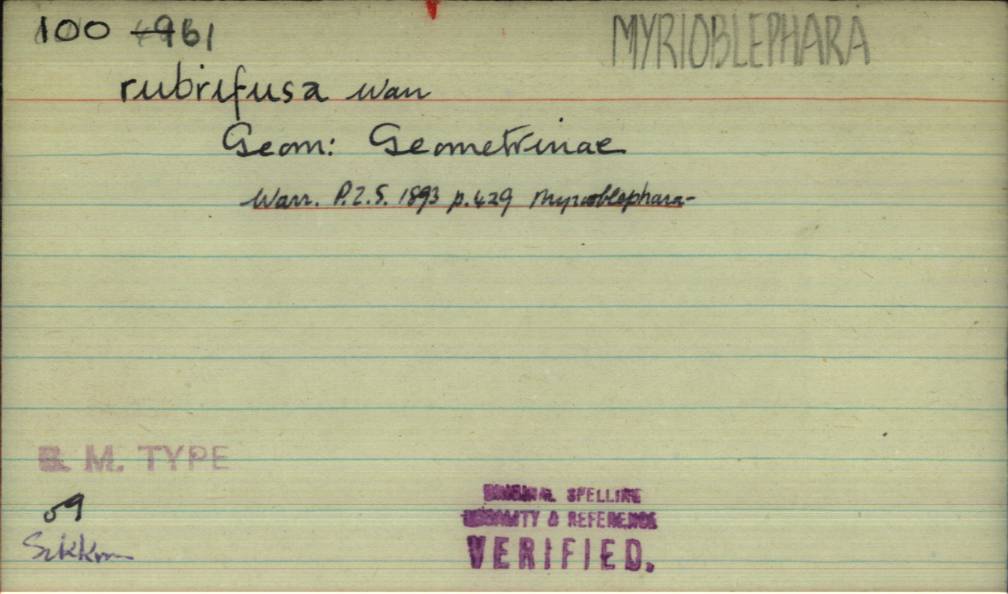 100 4961
MYRIOBLEPHARA
rubrifusa Warr
Geom: Geometrinae
Warr. P.Z.S. 1893 p.429 Myrioblephara
B. M. TYPE
Sikkim
ORIGINAL SPELLING
PRIORITY & REFERENCE
VERIFIED.